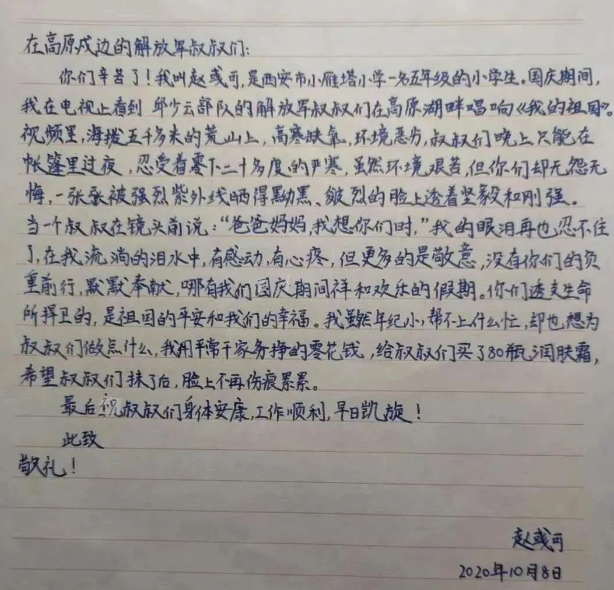 在高原戍边的解放军叔叔们:
你们辛苦了!我叫赵彧可,是西安市小雁塔小学一名五年级的小学生。国庆期间,
我在电视上看到 邱少云部队的解放军叔叔们在高原湖畔唱响《我的祖国》。
视频里,海拔五千多米的荒山上,高寒缺氧,环境恶劣,叔叔们晚上只能在
帐篷里过夜,忍受着零下二十多度的严寒,虽然环境艰苦,但你们却无怨无
悔,一张张被强烈紫外线晒得黝黑、皴烈的脸上透着坚毅和刚强。
当一个叔叔在镜头前说:“爸爸妈妈,我想你们时,”我的眼泪再也忍不住
了,在我流淌的泪水中,有感动,有心疼,但更多的是敬意,没有你们的负
重前行,默默奉献,哪有我们国庆期间祥和欢乐的假期。你们透支生命
所捍卫的,是祖国的平安和我们的幸福。我虽然年纪小,帮不上什么忙,却也想为
叔叔们做点什么,我用平常干家务挣的零花钱,给叔叔们买了80瓶润肤霜,
希望叔叔们抹了后,脸上不再伤痕累累。
最后祝叔叔们身体安康,工作顺利,早日凯旋!
此致
敬礼!
赵彧可
2020年10月8日